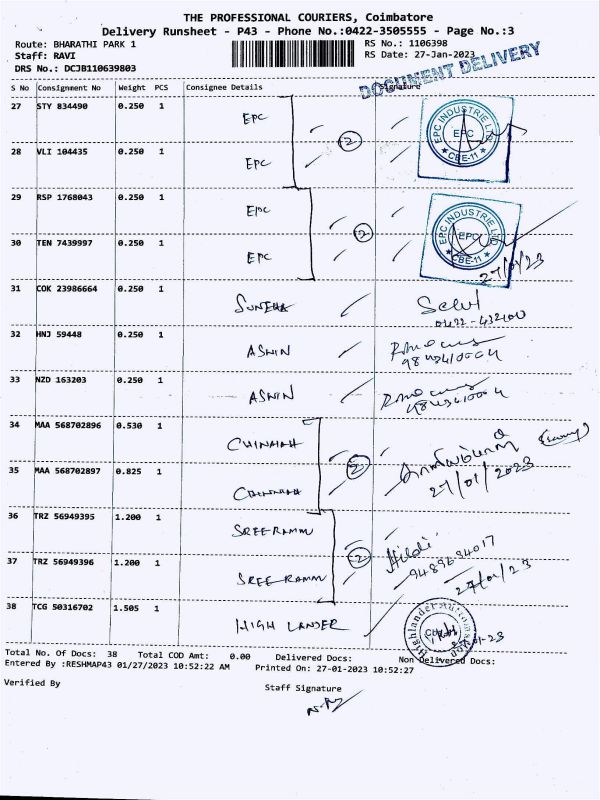 THE PROFESSIONAL COURIERS, Coimbatore
Delivery Runsheet - P43 - Phone No.:0422-3505555 - Page No.:3
Route: BHARATHI PARK 1
RS No.: 1106398
Staff: RAVI
RS Date: 27-Jan-2023
DRS No.: DCJB110639803
DOCUMENT DELIVERY
S No Consignment No Weight PCS Consignee Details Signature
27 STY 834490 0.250 1 EPC
EPC INDUSTRIE LTD
EPC
CBE-11
2
28 VLI 104435 0.250 1 EPC
29 RSP 1768043 0.250 1 EPC
EPC INDUSTRIE LTD
EPC
CBE-11
2
30 TEN 7439997 0.250 1 EPC
27/01/23
31 COK 23986664 0.250 1
32 HNJ 59448 0.250 1 ASWIN
33 NZD 163203 0.250 1 ASWIN
34 MAA 568702896 0.530 1
2
27/01/2023
35 MAA 568702897 0.825 1
36 TRZ 56949395 1.200 1 SREERAMM
2
9489694017
37 TRZ 56949396 1.200 1 SREERAMM
27/01/23
38 TCG 50316702 1.505 1 HIGH LANDER
Total No. Of Docs: 38 Total COD Amt: 0.00 Delivered Docs: Non Delivered Docs:
Entered By :RESHMAP43 01/27/2023 10:52:22 AM Printed On: 27-01-2023 10:52:27
Verified By
Staff Signature